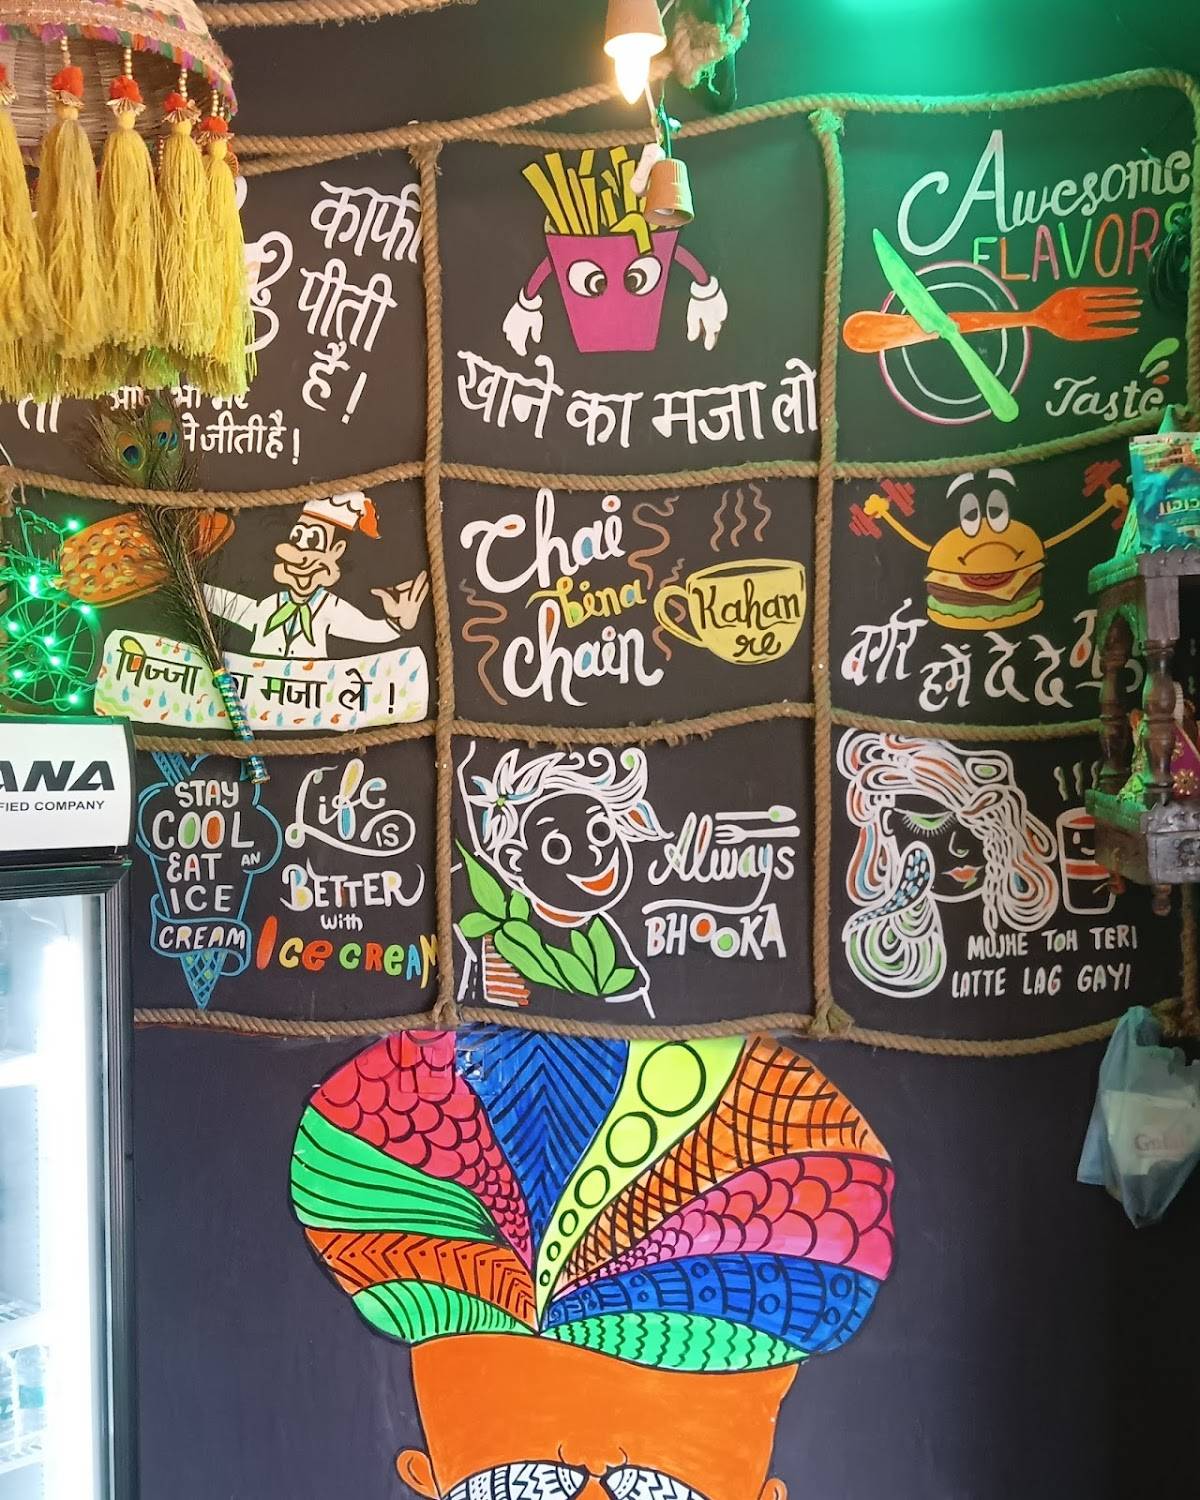 काफी
पीती
है!
जीती है!
खाने का मजा लो
Awesome
FLAVORS
Taste
पिज्जा का मजा ले !
Chai
bina
chain
Kahan
re
बर्गर हमें दे दे
ANA
FIED COMPANY
STAY
COOL
EAT AN
ICE
CREAM
Life
is
BETTER
with
Ice cream
Always
BHOOKA
MUJHE TOH TERI
LATTE LAG GAYI